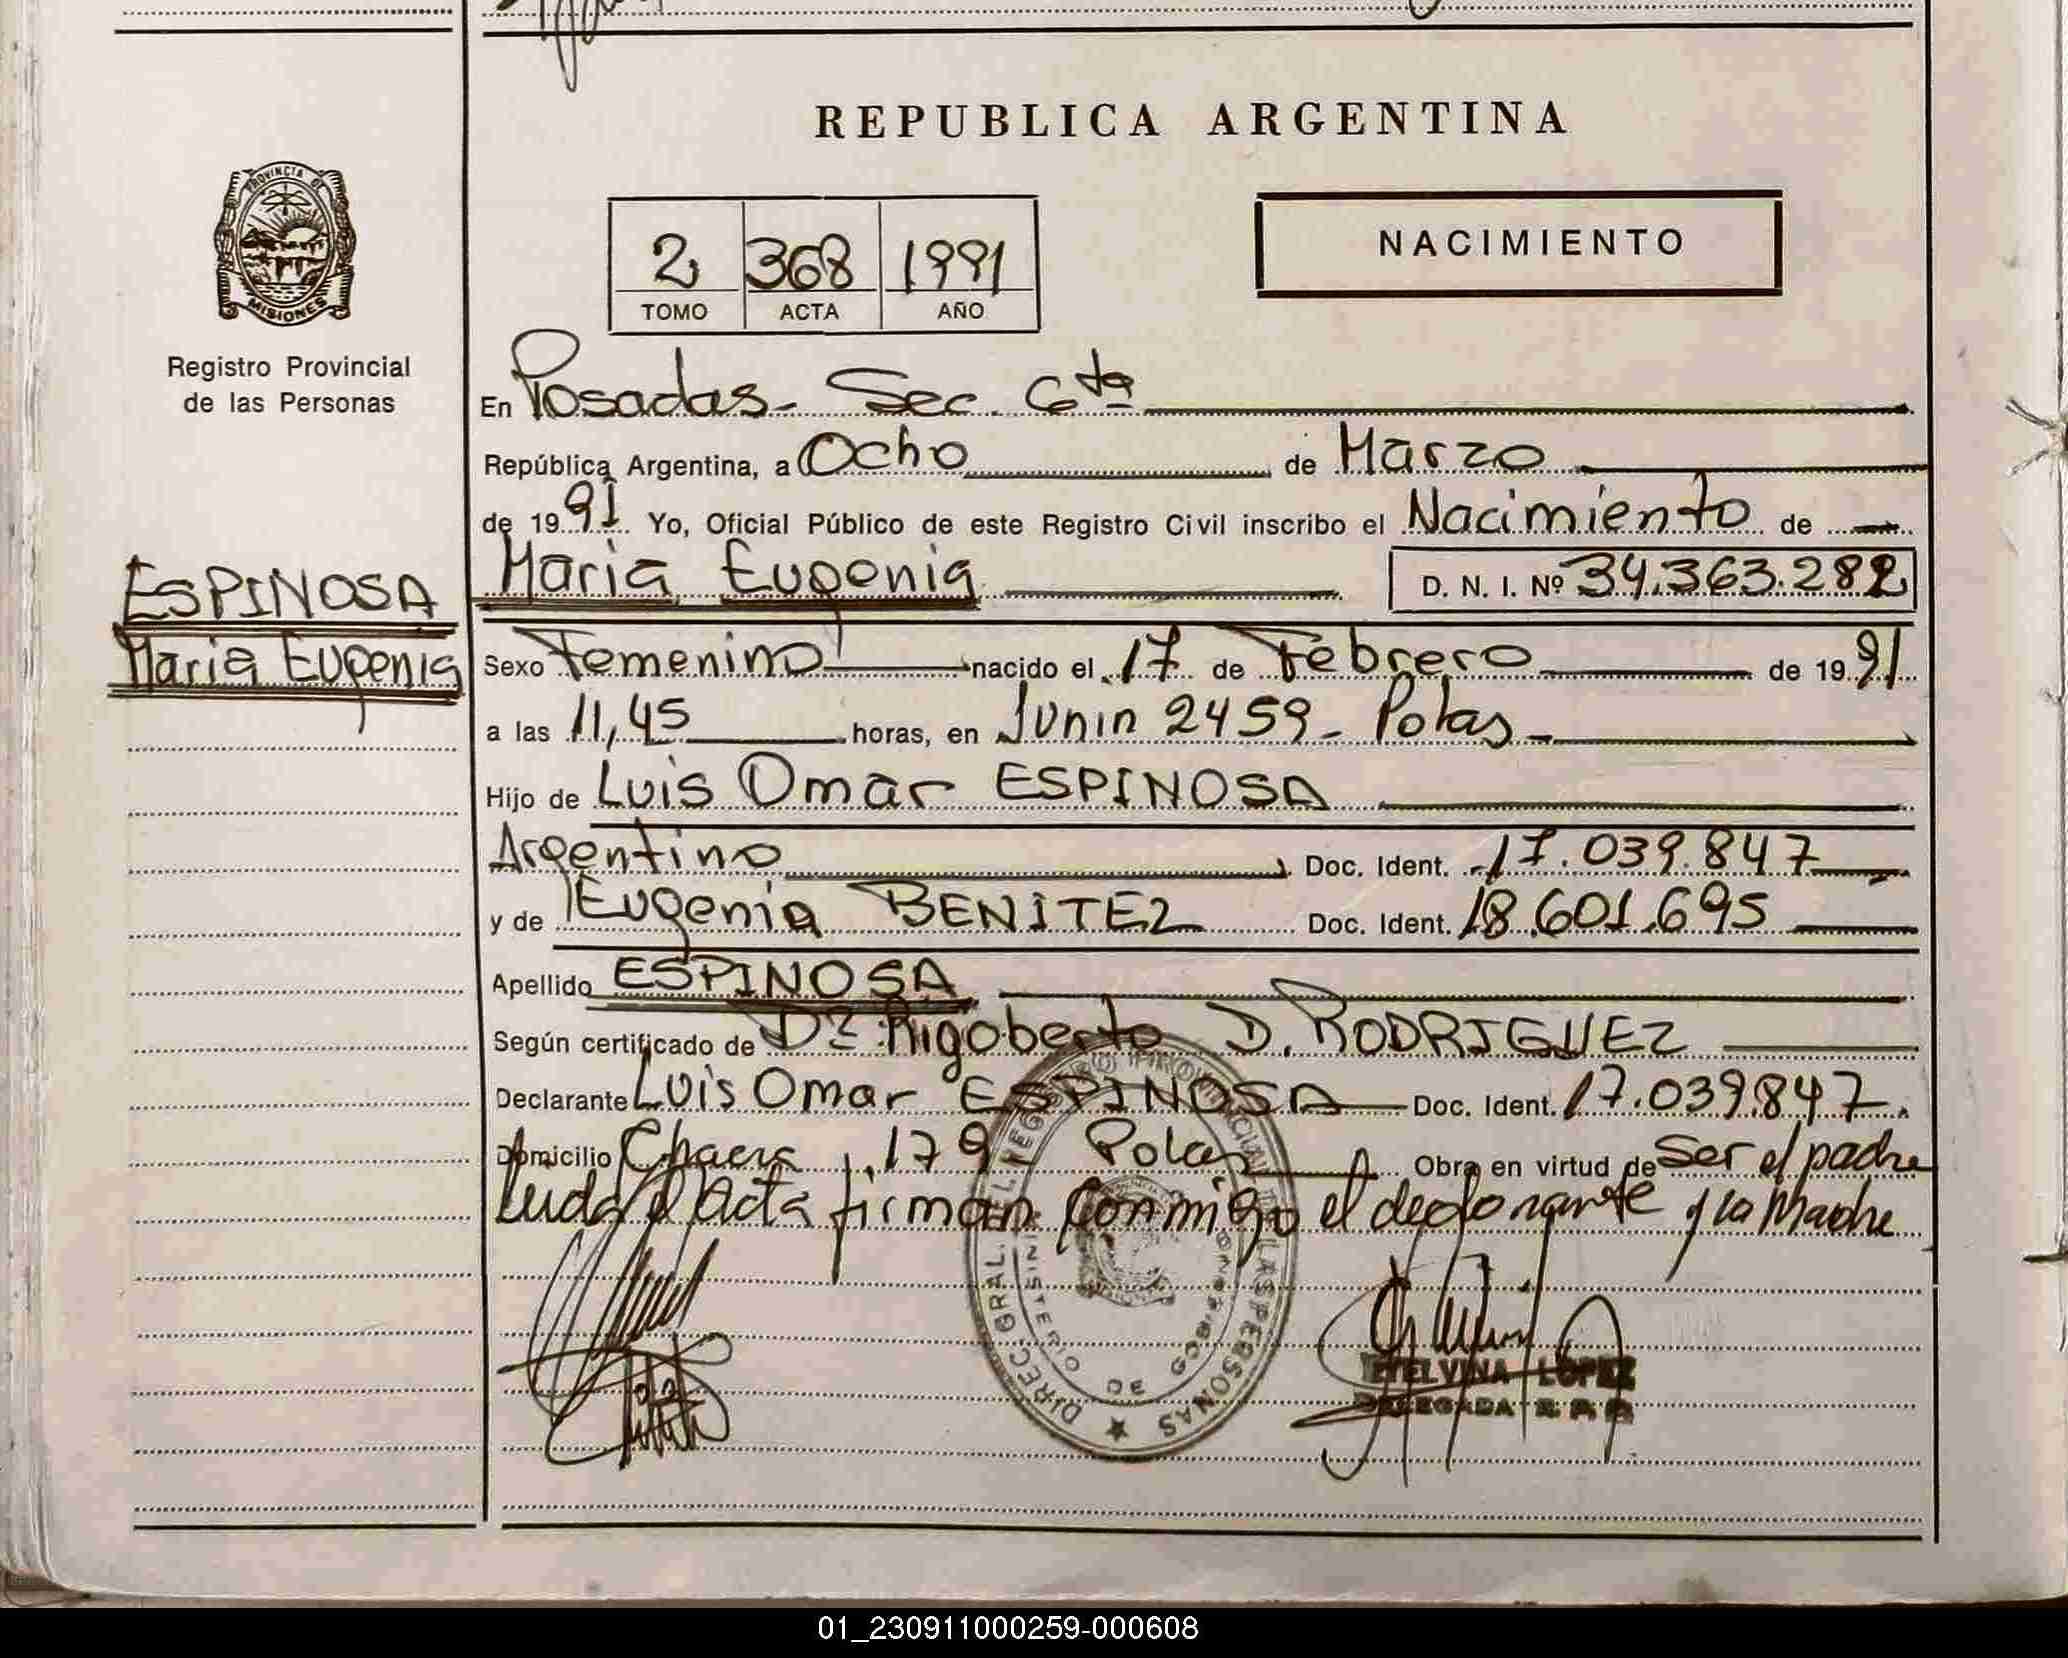 REPUBLICA ARGENTINA
PROVINCIA DE
MISIONES
Registro Provincial
de las Personas
2 368 1991
TOMO ACTA AÑO
NACIMIENTO
En Posadas - Sec. 6ta
República Argentina, a Ocho de Marzo
de 1991 Yo, Oficial Público de este Registro Civil inscribo el Nacimiento de
Maria Eugenia D. N. I. Nº 34.363.282
ESPINOSA
Maria Eugenia
Sexo Femenino nacido el 17 de Febrero de 1991
a las 11,45 horas, en Junin 2459 - Pdas -
Hijo de Luis Omar ESPINOSA
Argentino Doc. Ident. 17.039.847
y de Eugenia BENITEZ Doc. Ident. 18.601.695
Apellido ESPINOSA
Según certificado de Dr. Rigoberto D. RODRIGUEZ
Declarante Luis Omar ESPINOSA Doc. Ident. 17.039.847
Domicilio Chacra 179 Pdas Obra en virtud de Ser el padre
Leida el Acta firman conmigo el declarante y la Madre
DIREC. GRAL. DEL REGISTRO PROVINCIAL DE LAS PERSONAS
MINISTERIO DE GOBIERNO
ETELVINA LOPEZ
DELEGADA R. P. P.
01_230911000259-000608